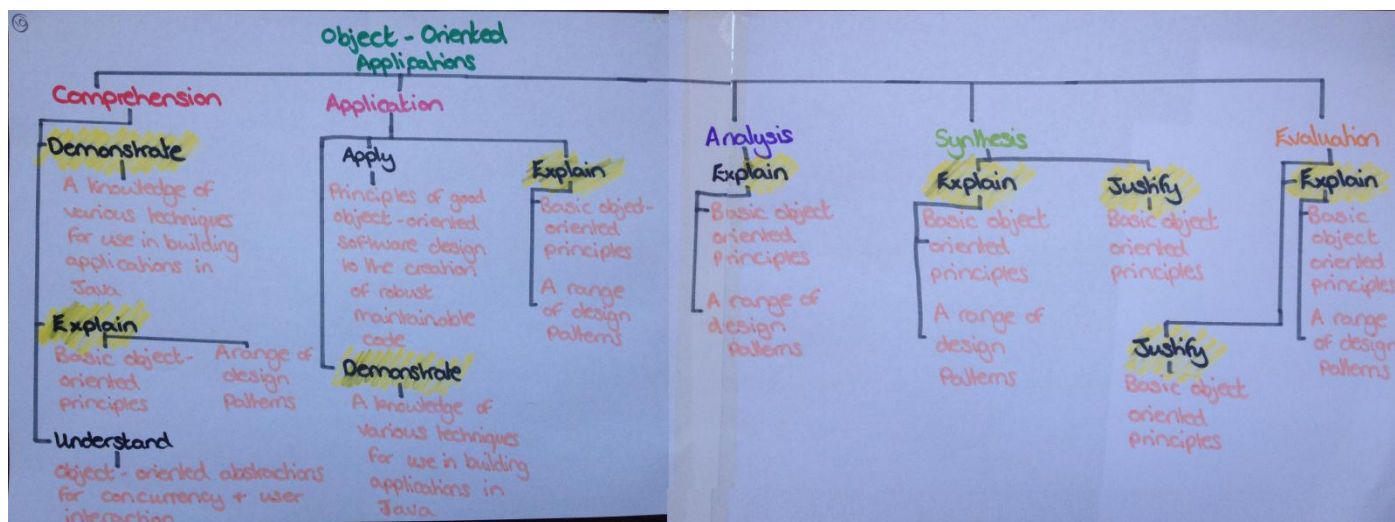 10
Object - Oriented
Applications
Comprehension
Demonstrate
A knowledge of
various techniques
for use in building
applications in
Java
Explain
Basic object-
oriented
principles
A range of
design
Patterns
Understand
Object - oriented abstractions
for concurrency + user
interaction
Application
Apply
Principles of good
object-oriented
software design
to the creation
of robust
maintainable
code
Demonstrate
A knowledge of
various techniques
for use in building
applications in
Java
Explain
Basic object-
oriented
principles
A range
of design
Patterns
Analysis
Explain
Basic object
oriented
principles
A range of
design
Patterns
Synthesis
Explain
Basic object
oriented
principles
A range of
design
Patterns
Justify
Basic object
oriented
principles
Evaluation
Explain
Basic
object
oriented
principles
A range
of design
Patterns
Justify
Basic object
oriented
principles